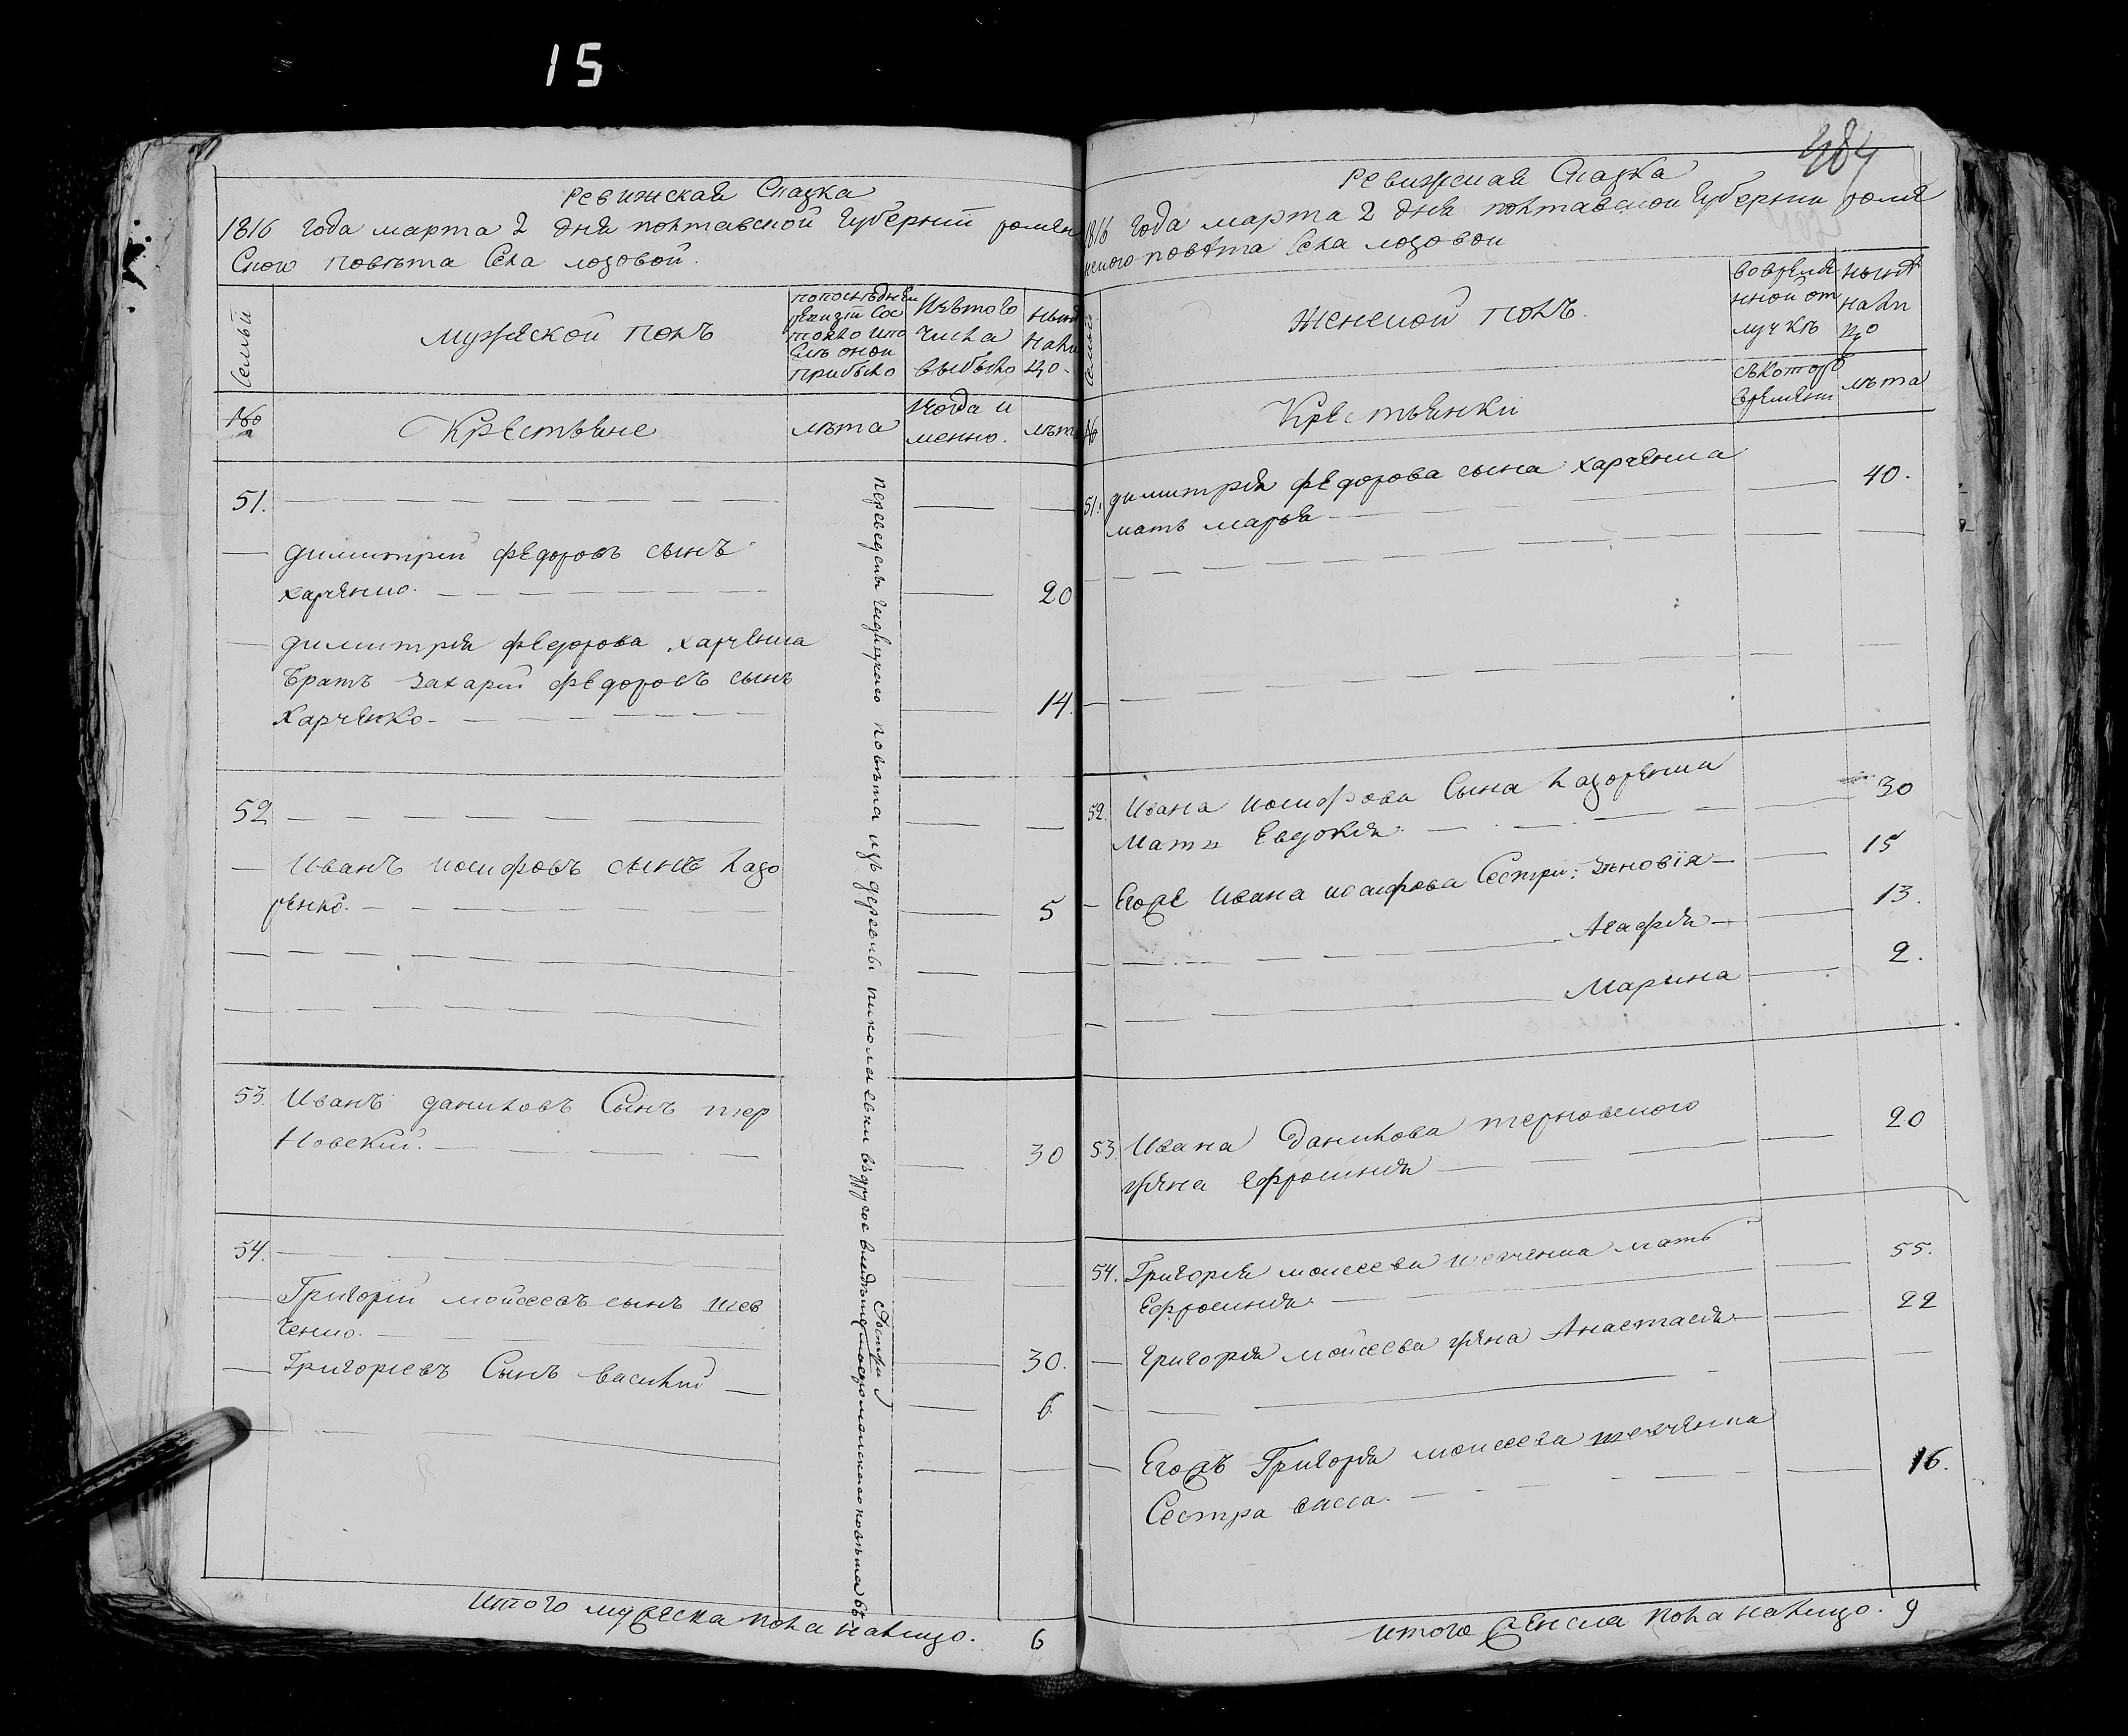 15
484
Ревижская Сказка
1816 года марта 2 дня полтавской Губернии ромен
Ского повѣта Села лозовой.
Семьи
мужеской полъ
попослѣдней
ревизій Сос
тояло и по
слѣ оной
прибыло
Изъ того
числа
выбыло
ныне
нали
цо.
№
Крестьяне
лѣта
когда и
менно.
лѣта
51.
димитрій федоровъ сынъ
харченко.
20
димитрія федорова харченка
братъ захарій федоровъ сынъ
Харченко
14.
52
Иванъ иосифовъ сынъ лазо
ренко.
5
53. Иванъ даниловъ Сынъ тер
новский.
30
54.
Григорій мойсеевъ сынъ шев
ченко.
30.
Григориевъ Сынъ василий
6.
переведены повѣта изъ деревни николаевки въ другое
повѣта въ
Итого мужеска пола налицо. 6
Ревижская Сказка
1816 года марта 2 дня полтавской Губернии роме
нского повѣта Села лозовой
Семьи
Женской полъ.
во време
нной от
лучкѣ
нынѣ
нали
цо
№
Крестьянки
съ которого
времени
лѣта
51. димитрія федорова сына харченка
мать марья
40.
52. Ивана иосифова Сына лазоренка
Мать Евдокия.
30
Егоже Ивана иосифова Сестри: Зѣновїя
15
Агафия
13.
Марина
2.
53. Ивана Данилова терновского
жена ефросиния
20
54. Григория моисеева шевченка мать
Ефросиния.
55.
Григория мойсеева жена Анастасия
22
Егожъ Григория моисеева шевченка
Сестра васса.
16.
итого женска пола налицо. 9